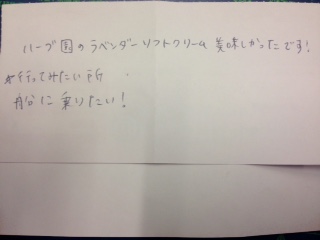 ハーブ園のラベンダーソフトクリーム美味しかったです!
☆行ってみたい所
船に乗りたい!